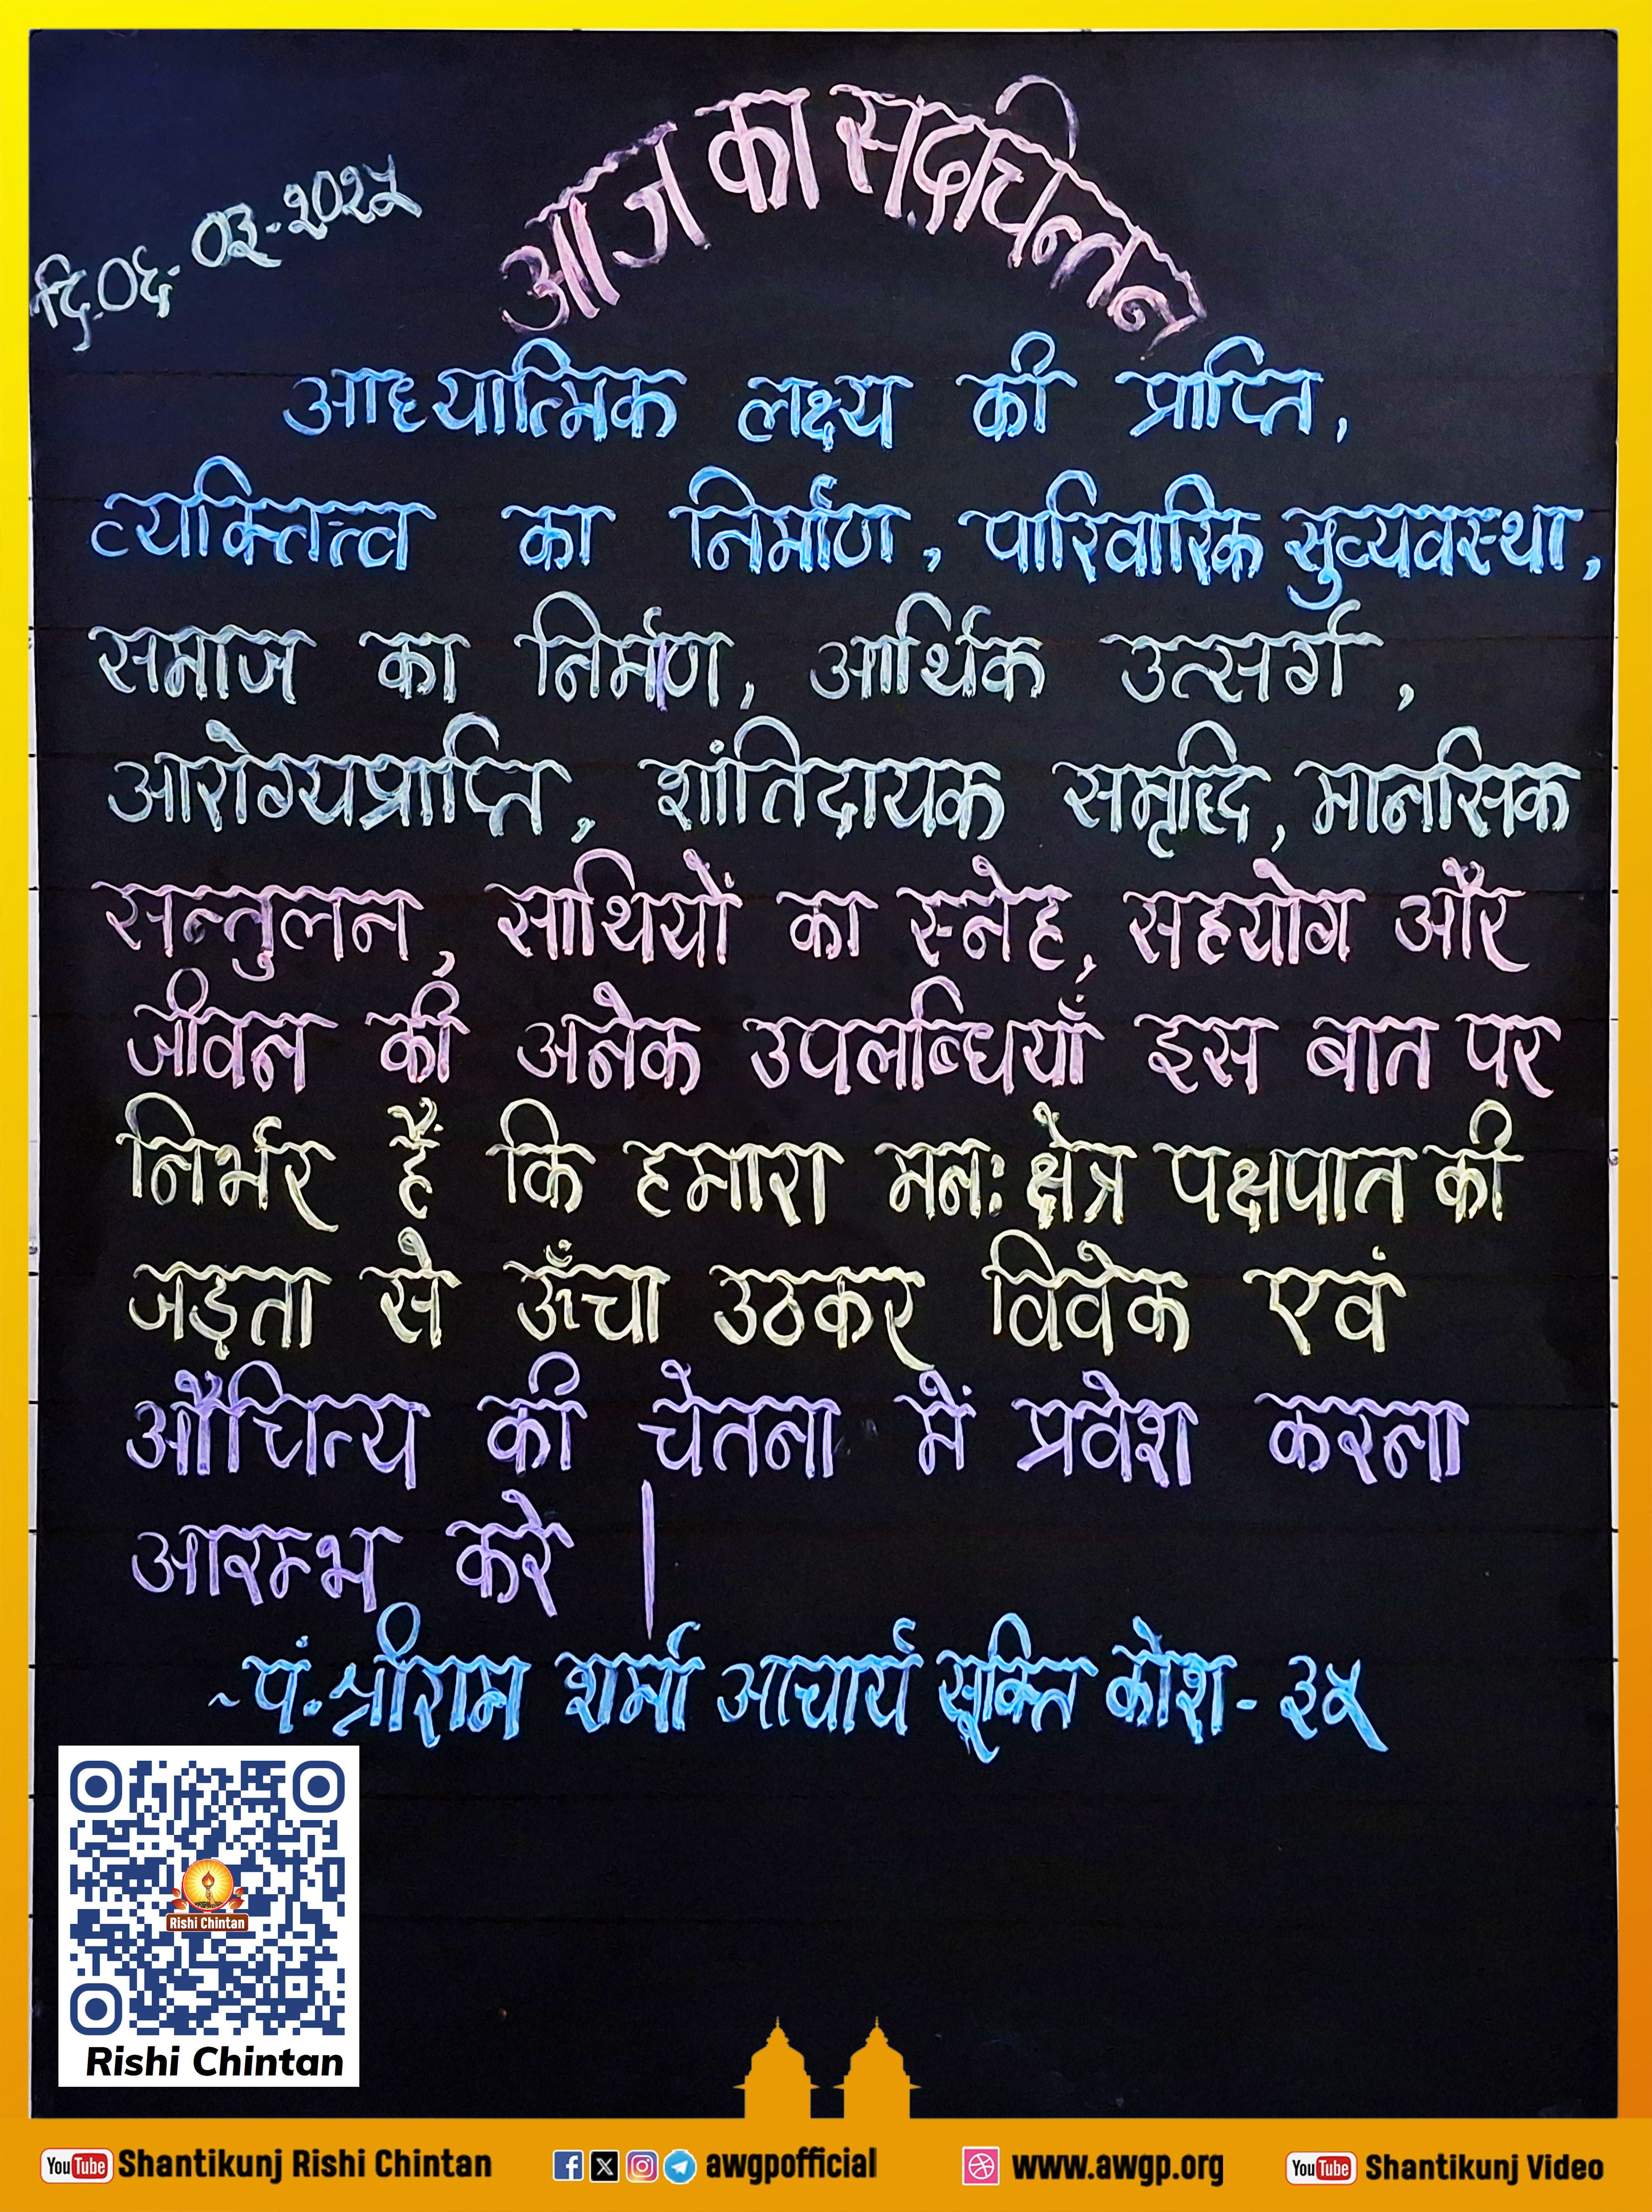 आज का सद्चिन्तन
दि.०६-०३-२०२५
आध्यात्मिक लक्ष्य की प्राप्ति,
व्यक्तित्व का निर्माण, पारिवारिक सुव्यवस्था,
समाज का निर्माण, आर्थिक उत्सर्ग,
आरोग्यप्राप्ति, शांतिदायक समृद्धि, मानसिक
सन्तुलन, साथियों का स्नेह, सहयोग और
जीवन की अनेक उपलब्धियाँ इस बात पर
निर्भर हैं कि हमारा मनःक्षेत्र पक्षपात की
जड़ता से ऊँचा उठकर विवेक एवं
औचित्य की चेतना में प्रवेश करना
आरम्भ करे |
~पं.श्रीराम शर्मा आचार्य सूक्ति कोश-३५
Rishi Chintan
Rishi Chintan
YouTube Shantikunj Rishi Chintan awgpofficial www.awgp.org YouTube Shantikunj Video